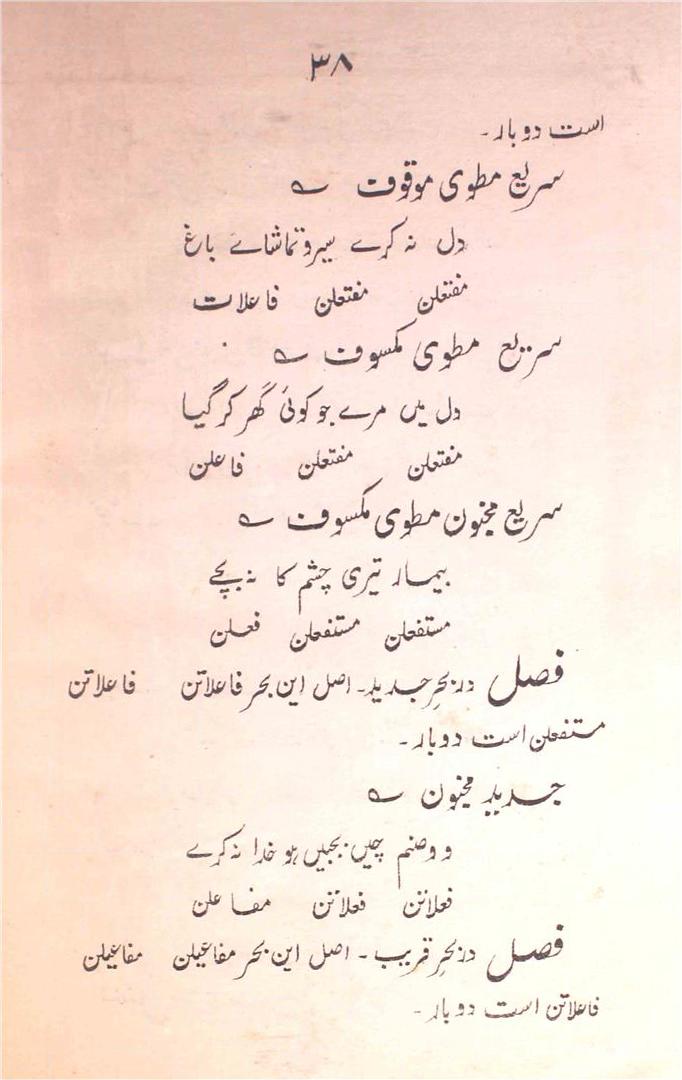 ۳۸
است دوبار۔
سریع مطوی موقوف ؎
دل نہ کرے سیر و تماشاے باغ
مفتعلن مفتعلن فاعلات
سریع مطوی مکسوف ؎
دل میں مرے جو کوئی گھر کر گیا
مفتعلن مفتعلن فاعلن
سریع مخبون مطوی مکسوف ؎
بیمار تیری چشم کا نہ بچے
مستفعلن مستفعلن فعلن
فصل در بحرِ جدید۔ اصل این بحر فاعلاتن فاعلاتن
مستفعلن است دوبار۔
جدید مخبون ؎
وو صنم چیں بجبیں ہو خدا نہ کرے
فعلاتن فعلاتن مفاعلن
فصل در بحرِ قریب۔ اصل این بحر مفاعیلن مفاعیلن
فاعلاتن است دوبار۔